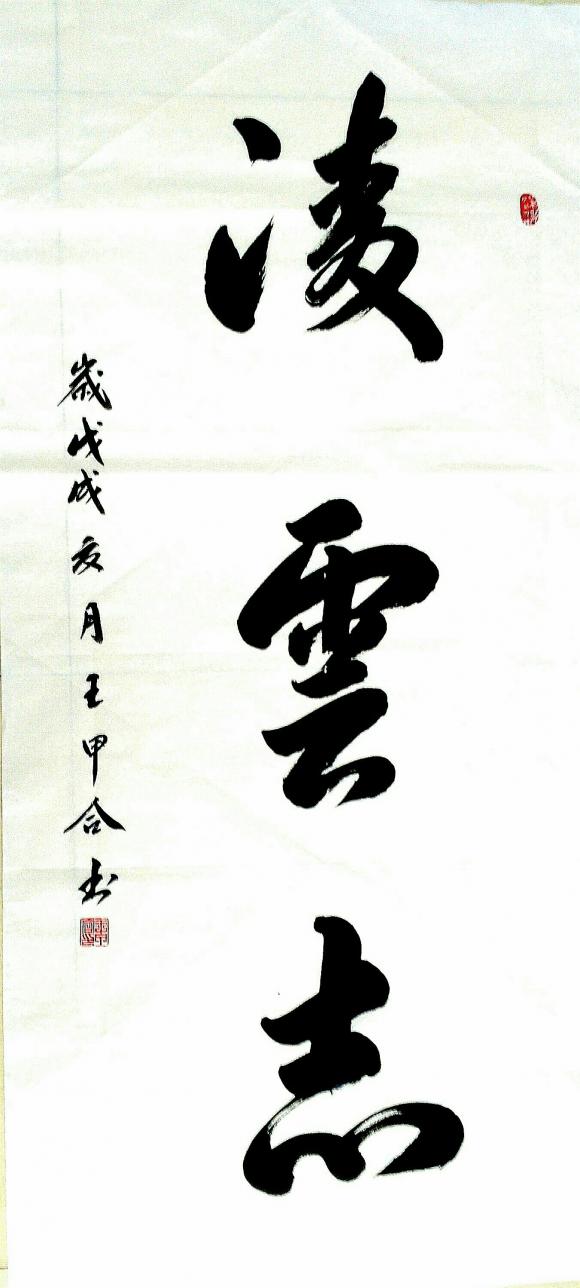 凌雲志
歲戊戌亥月王甲合书